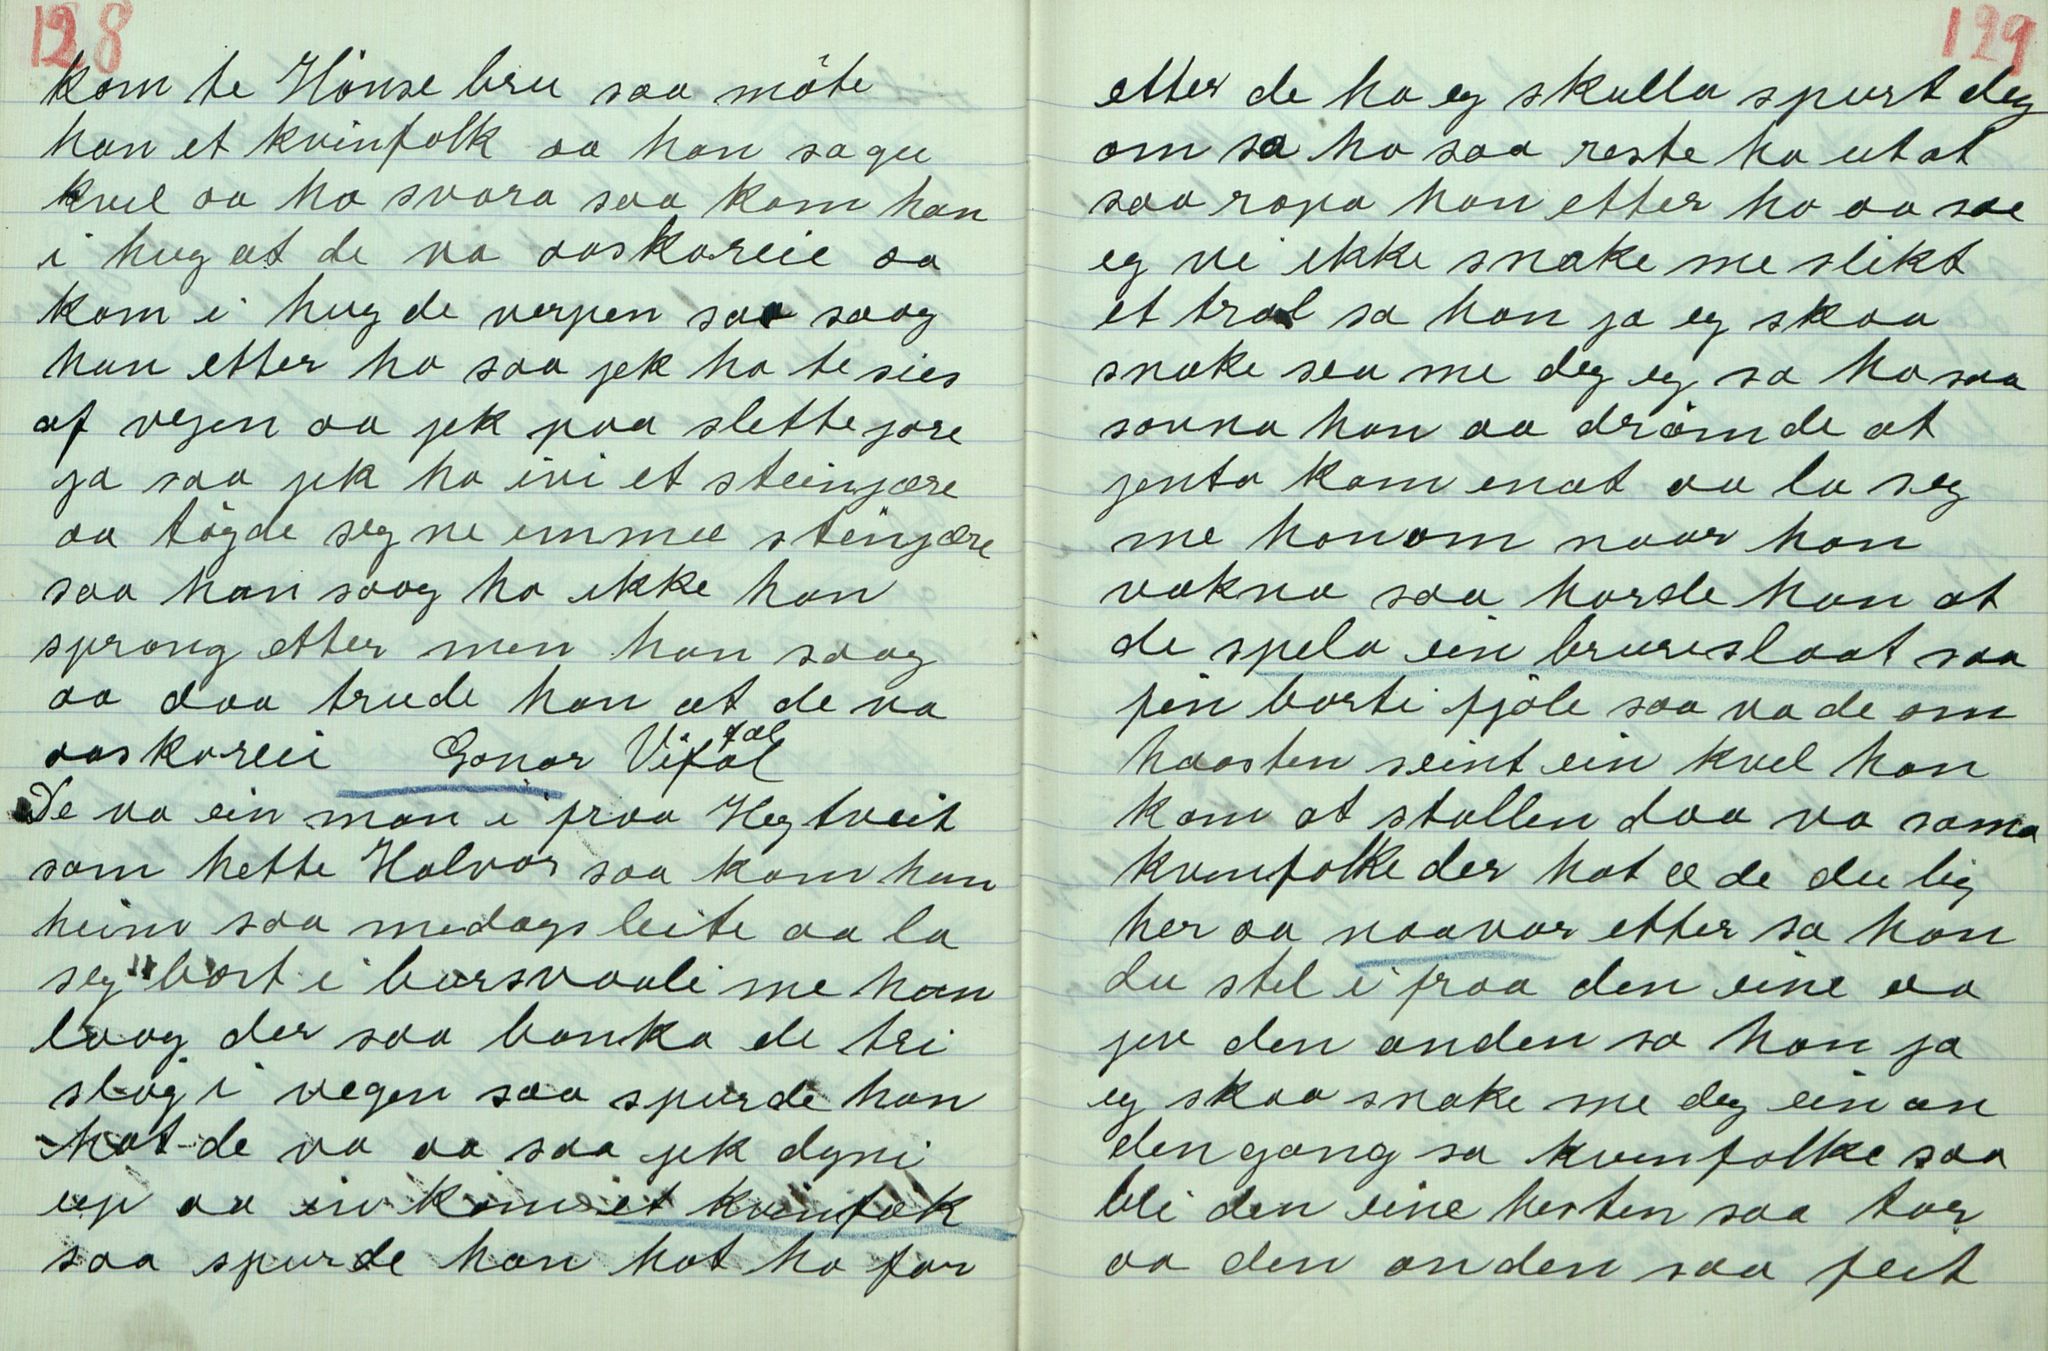 128
kom te Hönse bru saa möte
han et kvinfolk aa han sa gu
kvel aa ho svara saa kom han
i hug at de va aaskareie aa
kom i hug de verpen saa saag
han etter ho saa jek ho te sies
af vegen aa jek paa slette jore
ja saa jek ho ivi et steinjære
aa tögde seg ne unmee steinjære
saa han saag ho ikke han
sprang etter men han saag
aa daa trude han at de va
aaskareii Gonar Vifæl
De va ein man i fraa Hegtveit
som hette Halvor saa kom han
heim saa medags leite aa la
seg bort i bursvaali me han
laag der saa banka de tri
slög i vegen saa spurde han
hat de va aa saa jek dyni
up aa in kom et kvinfolk
saa spurde han hat ho for
129
etter de ha eg skulla spurt deg
om sa ho saa reste ho ut at
saa ropa han etter ho aa sae
eg vi ikke snake me slikt
et trol sa han ja eg skaa
snake sea me deg eg sa ho saa
sovna han aa drömde at
jenta kom inat aa la seg
me honom naar han
vakna saa horde han at
de spela ein brureslaat saa
fin borti fjöle saa va de om
haasten seint ein kvel han
kom at stallen daa va sama
kvinfolke der hat æ de du lig
her aa naavar etter sa han
du stel i fraa den eine aa
jev den anden sa han ja
eg skaa snake me deg ein an
den gang sa kvinfolke saa
blei den eine hesten saa tor
aa den anden saa feit